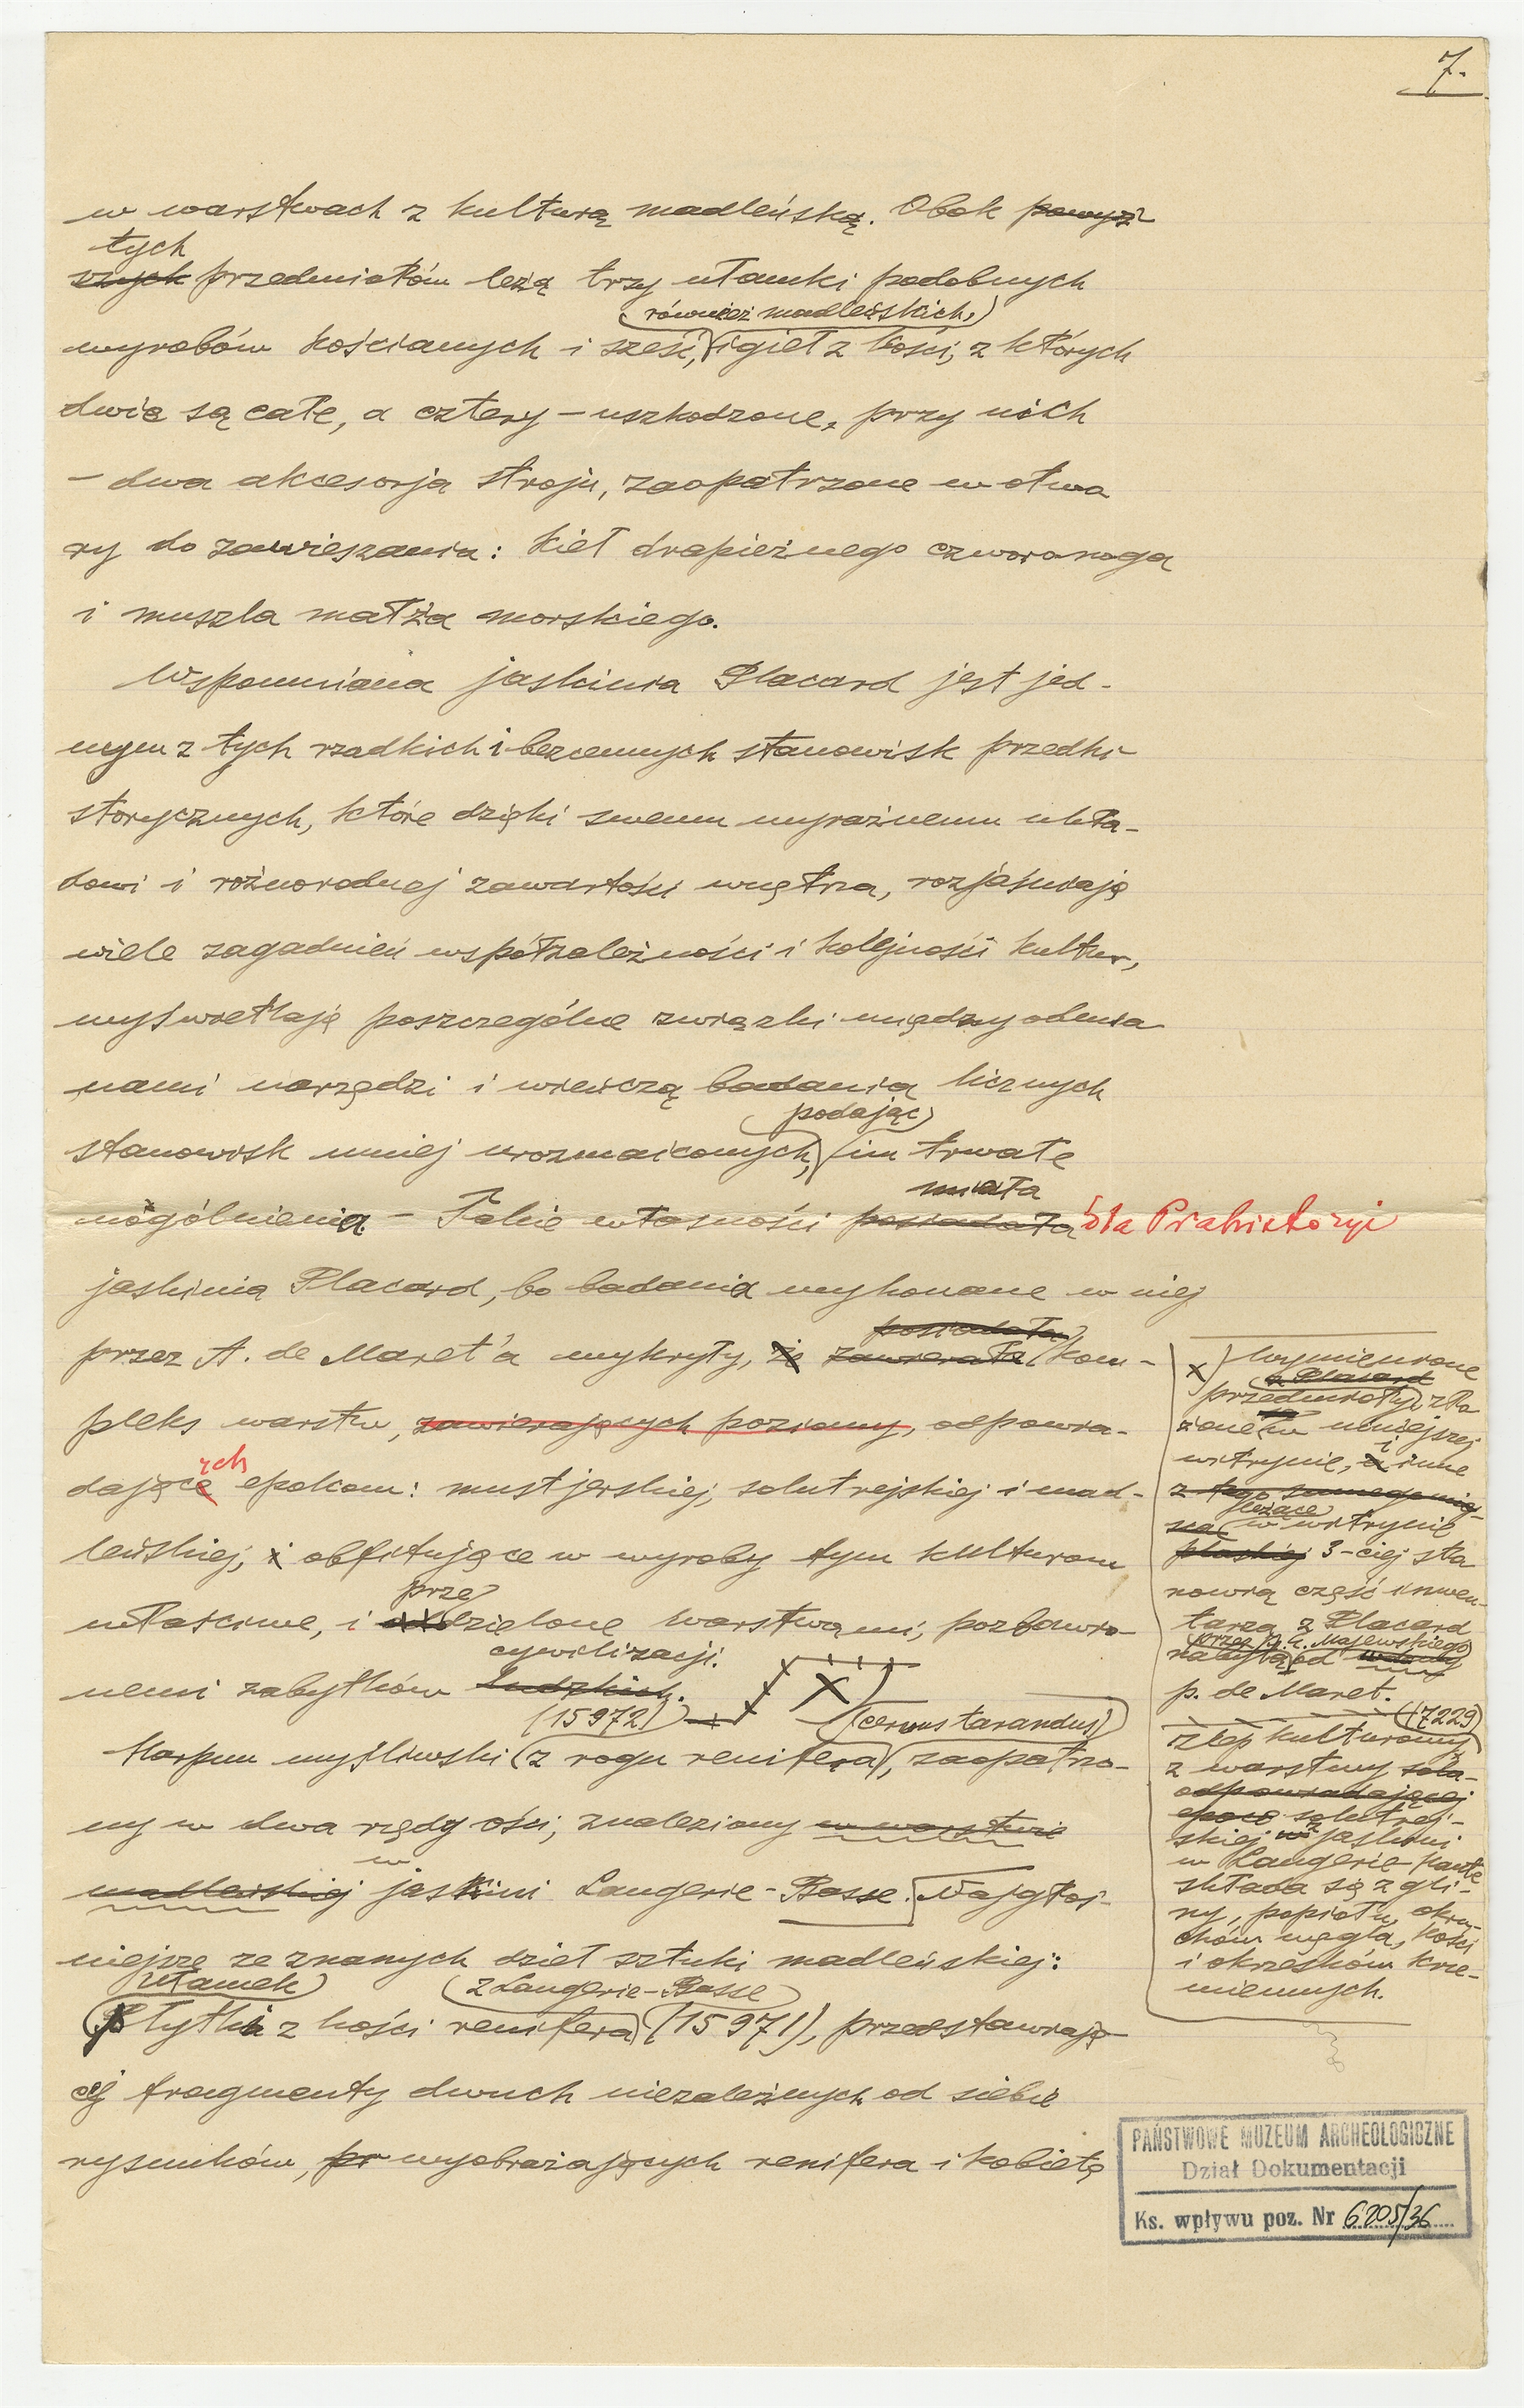 7.
w warstwach z kulturą madleńską. Obok powyż-
tych
szych przedmiotów leżą trzy ułamki podobnych
również madleńskich,
wyrobów kościanych i sześć, igieł z kości, z których
dwie są całe, a cztery – uszkodzone, przy nich
– dwa akcesorja stroju, zaopatrzone w otwo
ry do zawieszania: kieł drapieżnego czworonoga
i muszla małża morskiego.
Wspomniana jaskinia Placard jest jed-
nym z tych rzadkich i bezcennych stanowisk przedhi-
storycznych, które dzięki swemu wyraźnemu ukła-
dowi i różnorodnej zawartości wnętrza, rozjaśniają
wiele zagadnień współzależności i kolejności kultur,
wyświetlają poszczególne związki między odmia
nami narzędzi i wieńczą badania licznych
podając
stanowisk mniej urozmaiconych, im trwałe
miała
uogólnienia – Takie własności posiadała dla Prahistorji
jaskinia Placard, bo badania wykonane w niej
posiadała
przez A. de Maret'a wykryły, że zawierała kom-
pleks warstw, zawierających poziomy, odpowia-
ych
dające epokom: mustjerskiej, solutrejskiej i mad-
leńskiej, i obfitujące w wyroby tym kulturom
prze
właściwe, i oddzielone warstwami, pozbawio-
cywilizacji.
nemi zabytków ludzkich.
(15972) (cervus tarandus)
Harpun myśliwski (z rogu renifera), zaopatrzo-
ny w dwa rzędy ości, znaleziony w warstwie
w
madleńskiej jaskini Laugerie-Basse. Najgłoś-
niejsze ze znanych dzieł sztuki madleńskiej:
ułamek z Laugerie-Basse
Płytki z kości renifera (15971), przedstawiają-
cej fragmenty dwuch niezależnych od siebie
rysunków, pr wyobrażających renifera i kobietę
x) Wymienione
z Placard
przedmioty, zło
żone w mniejszej
i
witrynie, a inne
z tego samego miej-
leżące
sca w witrynie
płaskiej 3-ciej sta
nowią część inwen-
tarza z Placard
przez p. E. Majewskiego
nabytą od wdowy
p. de Maret.
(17229)
zlep kulturowy
z warstwy solu-
odpowiadającej
epoce solutrej-
skiej z jaskini
w Laugerie-Haute
składa się z gli-
ny, popiołu, okru-
chów węgla, kości
i okrzesków krze-
miennych.
PAŃSTWOWE MUZEUM ARCHEOLOGICZNE
Dział Dokumentacji
Ks. wpływu poz. Nr 6205/36